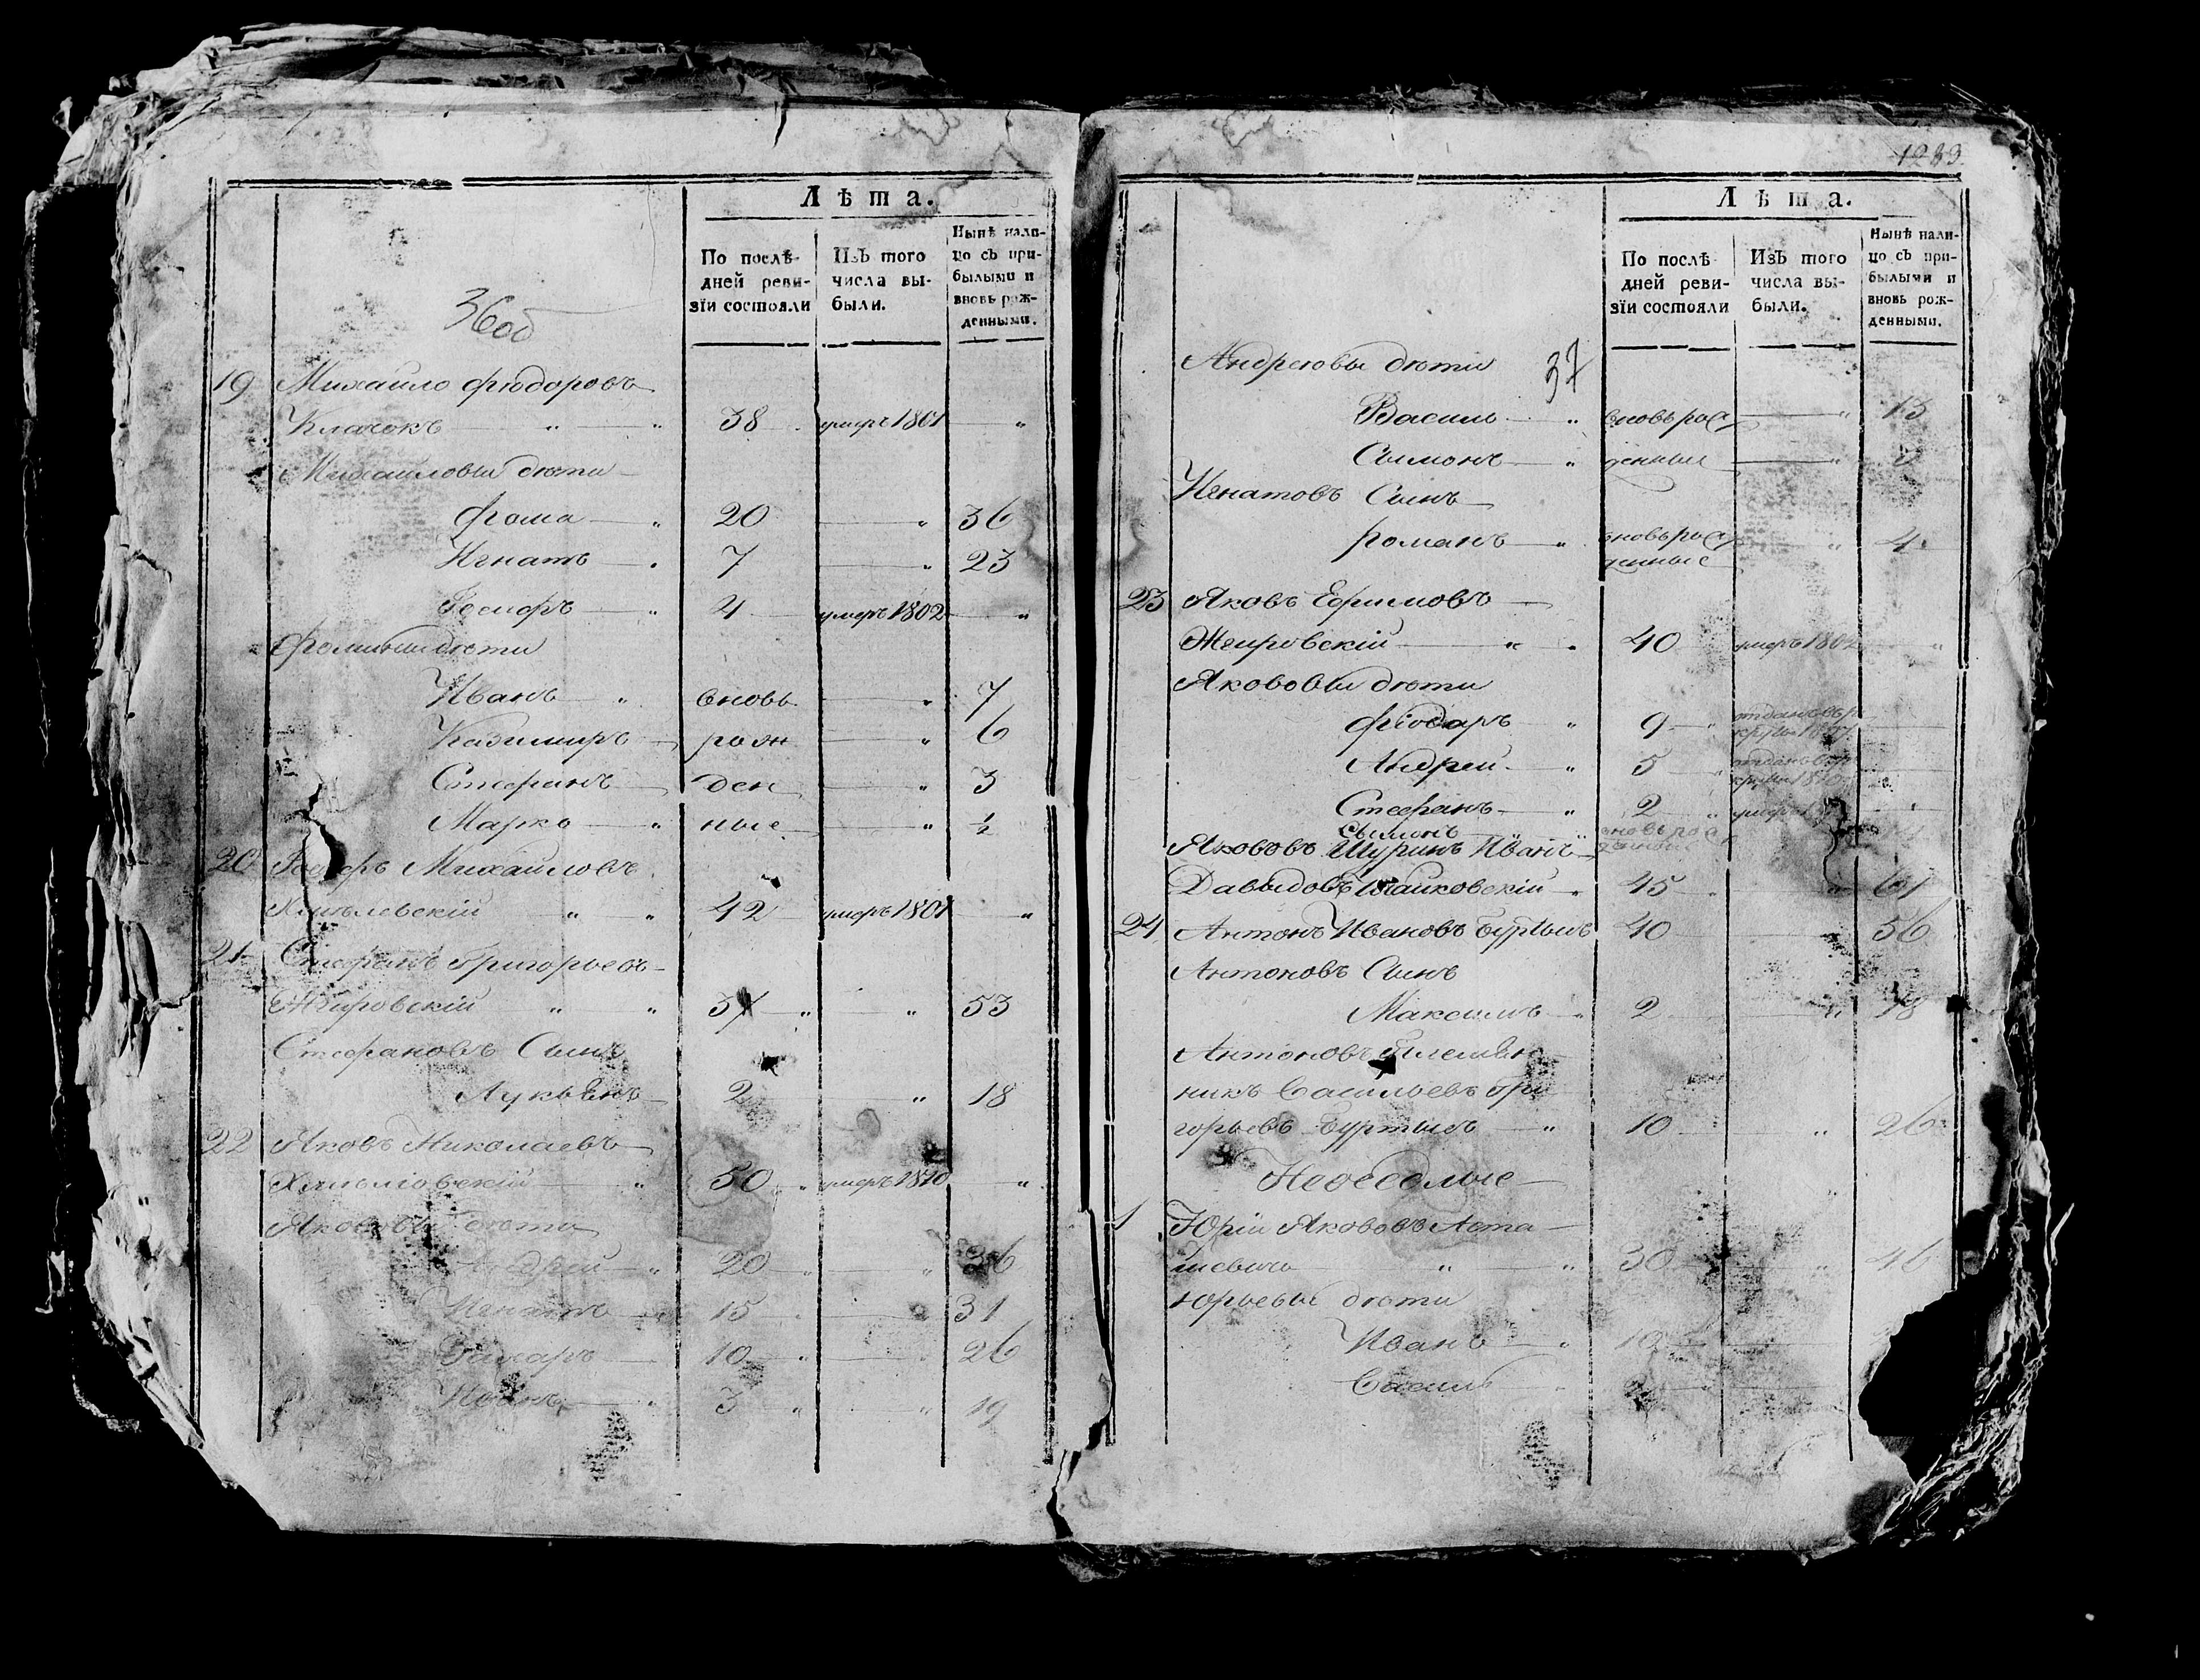 Лѣта.
По послѣдней ревизїи состояли
Изъ того числа выбыли.
Нынѣ налицо съ прибылыми и вновь рожденными.
36об
19 Михайло Фюдоровъ
Клачокъ " " 38 умеръ 1801 "
Михайловы дѣти
Фома " 20 " 36
Игнатъ " 7 " 23
Iосифъ " 4 умеръ 1802 "
Фомины дѣти
Иванъ " вновь " 7
Казимиръ рож " 6
Стефанъ ден " 3
Марко " ные " ½
20 Михайловъ
" " 42 умеръ 1801 "
21 Стефанъ Григорьевъ
Жировскій " " 37 " " 53
Стефановъ Сынъ
Лукьянъ 2 " 18
22 Яковъ Николаевъ
" 50 " умеръ 1810 "
Яковы дѣти
Андрей " 20 " " 36
Игнатъ 15 " " 31
Захаръ 10 " " 26
Иванъ " 3 " " 19
1239
Лѣта.
По послѣдней ревизїи состояли
Изъ того числа выбыли.
Нынѣ налицо съ прибылыми и вновь рожденными.
37
Андреювы дѣти
Василь " вновь рож " 13
Сымонъ " денныя " 3
Игнатовъ Сынъ
Романъ " вновь рож " 4
денные
23 Яковъ Ефимовъ
Жировскій " " 40 умеръ "
Якововы дѣти
Фіодоръ " 9 " отданъ въ ре
круты
Андрей " 5 " отданъ въ ре
круты 1810
Стефанъ " 2 " умеръ "
Сымонъ " вновь рож
Якововъ Шуринъ Иванъ денные
Давыдовъ " 45 " " 61
24 Антонъ Ивановъ Буртыль 40 56
Антоновъ Сынъ
Максимъ " 2 " 18
Антоновъ племян
никъ Васильевъ Гри
горьевъ Буртыль " 10 " 26
Неосѣдлые "
1 Юрій Якововъ Аста
шевичъ " " 30 " 46
Юрьевы дѣти
Иванъ " 10
Василь